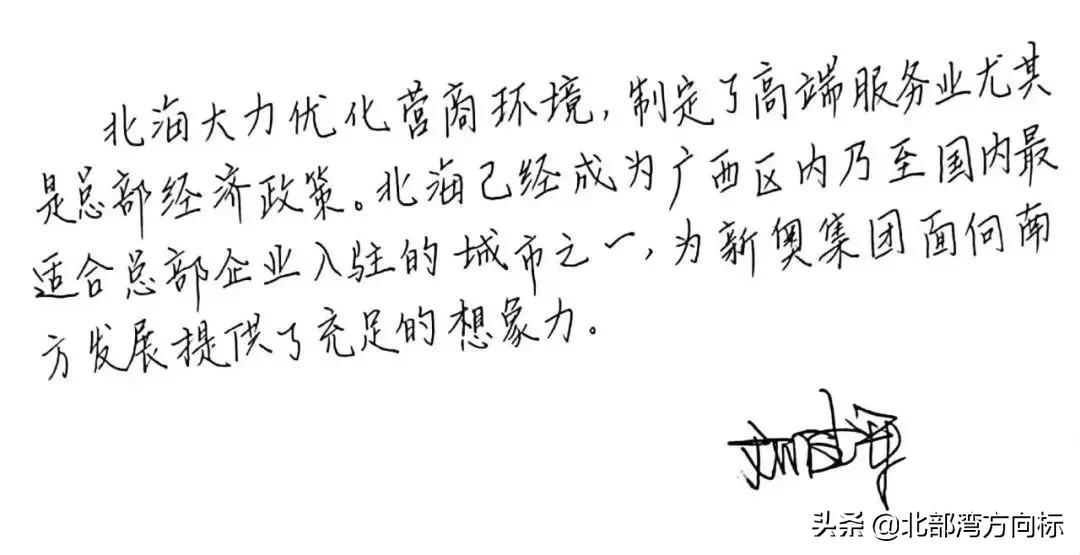 北海大力优化营商环境,制定了高端服务业尤其
是总部经济政策。北海已经成为广西区内乃至国内最
适合总部企业入驻的城市之一,为新奥集团面向南
方发展提供了充足的想象力。
头条 @北部湾方向标